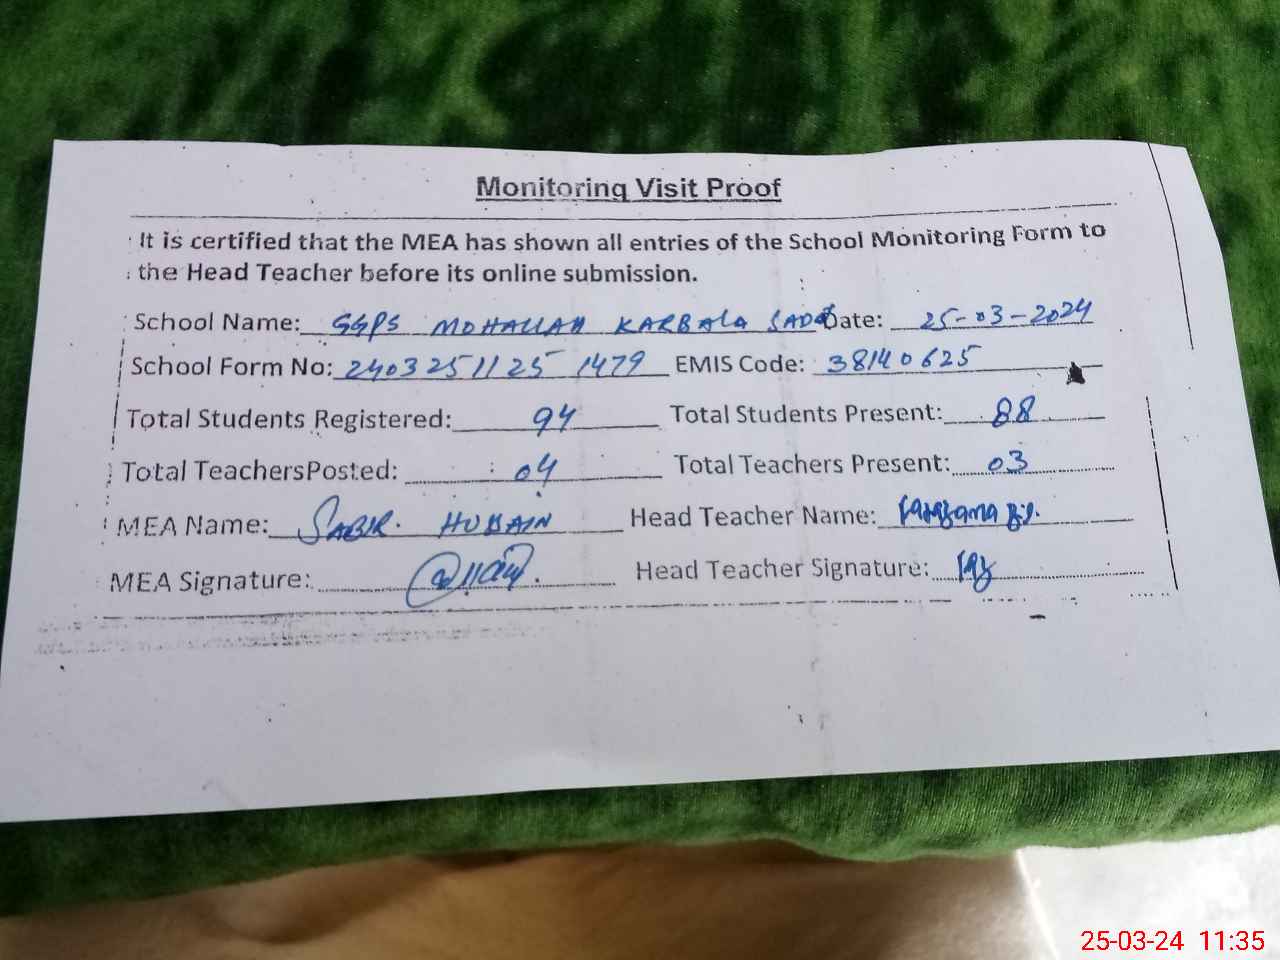 Monitoring Visit Proof
It is certified that the MEA has shown all entries of the School Monitoring Form to
the Head Teacher before its online submission.
School Name: GGPS MOHALLAH KARBALA SADAT Date: 25-03-2024
School Form No: 2403251125 1479 EMIS Code: 38140625
Total Students Registered: 94 Total Students Present: 88
Total TeachersPosted: 04 Total Teachers Present: 03
MEA Name: SABIR. HUSSAIN Head Teacher Name:
MEA Signature: Head Teacher Signature:
25-03-24 11:35